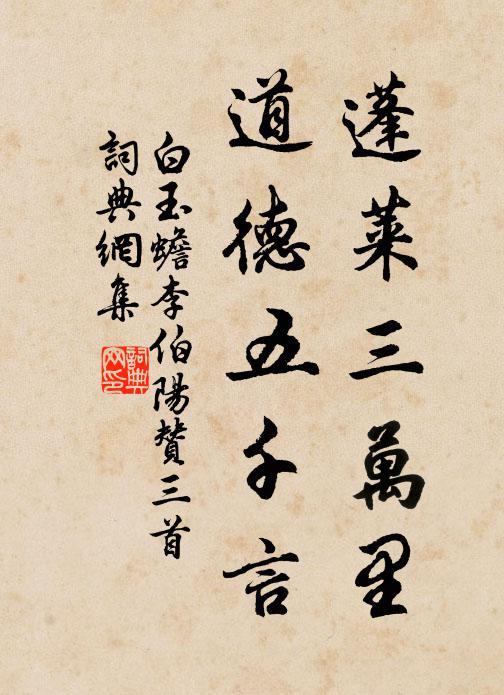 蓬萊三萬里
道德五千言
白玉蟾李伯陽贊三首
詞典網集
詞典網印